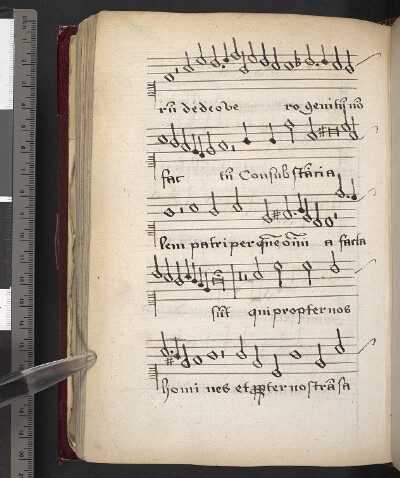 rū de deo ve ro genitū nō
fac tū Consubstācia
lem patri per quē oīm a facta
sūt qui propter nos
homi nes et ꝓpter nostrā sa